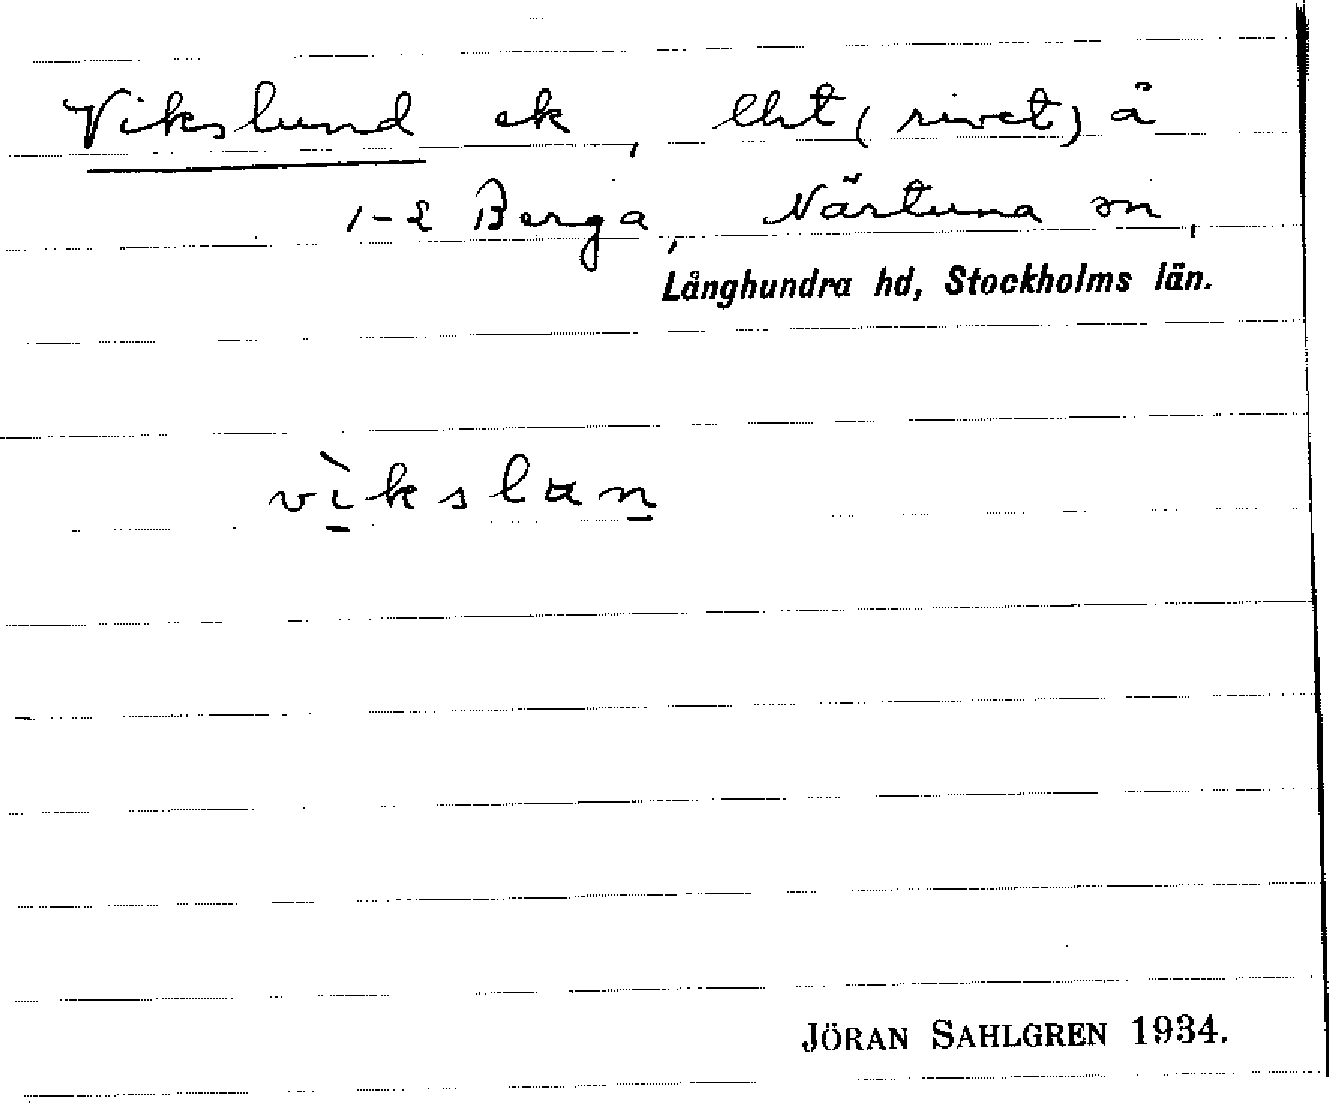 Vikslund ek, lht (rivet) å
1-2 Berga, Närtuna sn,
Långhundra hd, Stockholms län.
vì̠kslɯn̠
JÖRAN SAHLGREN 1934.